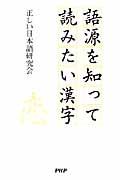 語源を知って
読みたい漢字
正しい日本語研究会
PHP